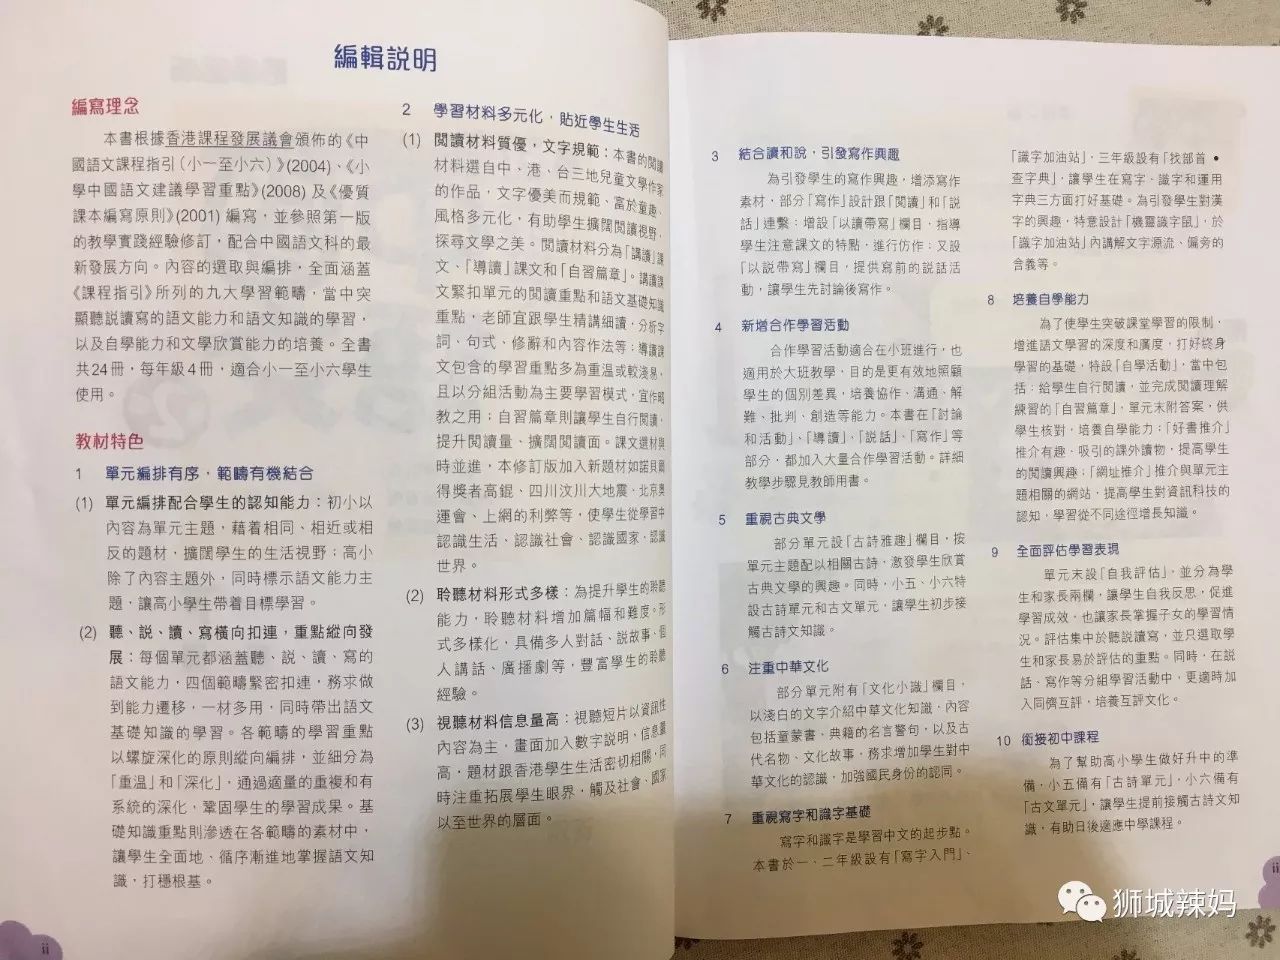 編輯説明
編寫理念
本書根據香港課程發展議會頒佈的《中
國語文課程指引（小一至小六）》(2004)、《小
學中國語文建議學習重點》(2008) 及《優質
課本編寫原則》(2001) 編寫，並參照第一版
的教學實踐經驗修訂，配合中國語文科的最
新發展方向。內容的選取與編排，全面涵蓋
《課程指引》所列的九大學習範疇，當中突
顯聽説讀寫的語文能力和語文知識的學習，
以及自學能力和文學欣賞能力的培養。全書
共24冊，每年級4冊，適合小一至小六學生
使用。
教材特色
1 單元編排有序，範疇有機結合
(1) 單元編排配合學生的認知能力：初小以
內容為單元主題，藉着相同、相近或相
反的題材，擴闊學生的生活視野；高小
除了內容主題外，同時標示語文能力主
題，讓高小學生帶着目標學習。
(2) 聽、説、讀、寫橫向扣連，重點縱向發
展：每個單元都涵蓋聽、説、讀、寫的
語文能力，四個範疇緊密扣連，務求做
到能力遷移，一材多用，同時帶出語文
基礎知識的學習。各範疇的學習重點
以螺旋深化的原則縱向編排，並細分為
「重温」和「深化」，通過適量的重複和有
系統的深化，鞏固學生的學習成果。基
礎知識重點則滲透在各範疇的素材中，
讓學生全面地、循序漸進地掌握語文知
識，打穩根基。
2 學習材料多元化，貼近學生生活
(1) 閲讀材料質優，文字規範：本書的閲讀
材料選自中、港、台三地兒童文學作家
的作品，文字優美而規範、富於童趣、
風格多元化，有助學生擴闊閲讀視野，
探尋文學之美。閲讀材料分為「講讀」課
文、「導讀」課文和「自習篇章」。講讀課
文緊扣單元的閲讀重點和語文基礎知識
重點，老師宜跟學生精講細讀，分析字
詞、句式、修辭和內容作法等；導讀課
文包含的學習重點多為重温或較淺易，
且以分組活動為主要學習模式，宜作略
教之用；自習篇章則讓學生自行閲讀，
提升閲讀量、擴闊閲讀面。課文選材與
時並進，本修訂版加入新題材如諾貝爾
得獎者高錕、四川汶川大地震、北京奧
運會、上網的利弊等，使學生從學習中
認識生活、認識社會、認識國家，認識
世界。
(2) 聆聽材料形式多樣：為提升學生的聆聽
能力，聆聽材料增加篇幅和難度。形
式多樣化，具備多人對話、説故事、個
人講話、廣播劇等，豐富學生的聆聽
經驗。
(3) 視聽材料信息量高：視聽短片以資訊性
內容為主，畫面加入數字説明，信息量
高，題材跟香港學生生活密切相關，同
時注重拓展學生眼界，觸及社會、國家
以至世界的層面。
ii
3 結合讀和說，引發寫作興趣
為引發學生的寫作興趣，增添寫作
素材，部分「寫作」設計跟「閱讀」和「説
話」連繫：增設「以讀帶寫」欄目，指導
學生注意課文的特點，進行仿作；又設
「以説帶寫」欄目，提供寫前的説話活
動，讓學生先討論後寫作。
4 新增合作學習活動
合作學習活動適合在小班進行，也
適用於大班教學，目的是更有效地照顧
學生的個別差異，培養協作、溝通、解
難、批判、創造等能力。本書在「討論
和活動」、「導讀」、「説話」、「寫作」等
部分，都加入大量合作學習活動。詳細
教學步驟見教師用書。
5 重視古典文學
部分單元設「古詩雅趣」欄目，按
單元主題配以相關古詩，激發學生欣賞
古典文學的興趣。同時，小五、小六特
設古詩單元和古文單元，讓學生初步接
觸古詩文知識。
6 注重中華文化
部分單元附有「文化小識」欄目，
以淺白的文字介紹中華文化知識，內容
包括童蒙書、典籍的名言警句，以及古
代名物、文化故事，務求增加學生對中
華文化的認識，加強國民身份的認同。
7 重視寫字和識字基礎
寫字和識字是學習中文的起步點。
本書於一、二年級設有「寫字入門」、
「識字加油站」，三年級設有「找部首•
查字典」，讓學生在寫字、識字和運用
字典三方面打好基礎。為引發學生對漢
字的興趣，特意設計「機靈識字鼠」，於
「識字加油站」內講解文字源流、偏旁的
含義等。
8 培養自學能力
為了使學生突破課堂學習的限制，
增進語文學習的深度和廣度，打好終身
學習的基礎，特設「自學活動」，當中包
括：給學生自行閱讀，並完成閱讀理解
練習的「自習篇章」，單元末附答案，供
學生核對，培養自學能力；「好書推介」
推介有趣、吸引的課外讀物，提高學生
的閱讀興趣；「網址推介」推介與單元主
題相關的網站，提高學生對資訊科技的
認知，學習從不同途徑增長知識。
9 全面評估學習表現
單元末設「自我評估」，並分為學
生和家長兩欄，讓學生自我反思，促進
學習成效，也讓家長掌握子女的學習情
況。評估集中於聽説讀寫，並只選取學
生和家長易於評估的重點。同時，在説
話、寫作等分組學習活動中，更適時加
入同儕互評，培養互評文化。
10 銜接初中課程
為了幫助高小學生做好升中的準
備，小五備有「古詩單元」，小六備有
「古文單元」，讓學生提前接觸古詩文知
識，有助日後適應中學課程。
狮城辣妈